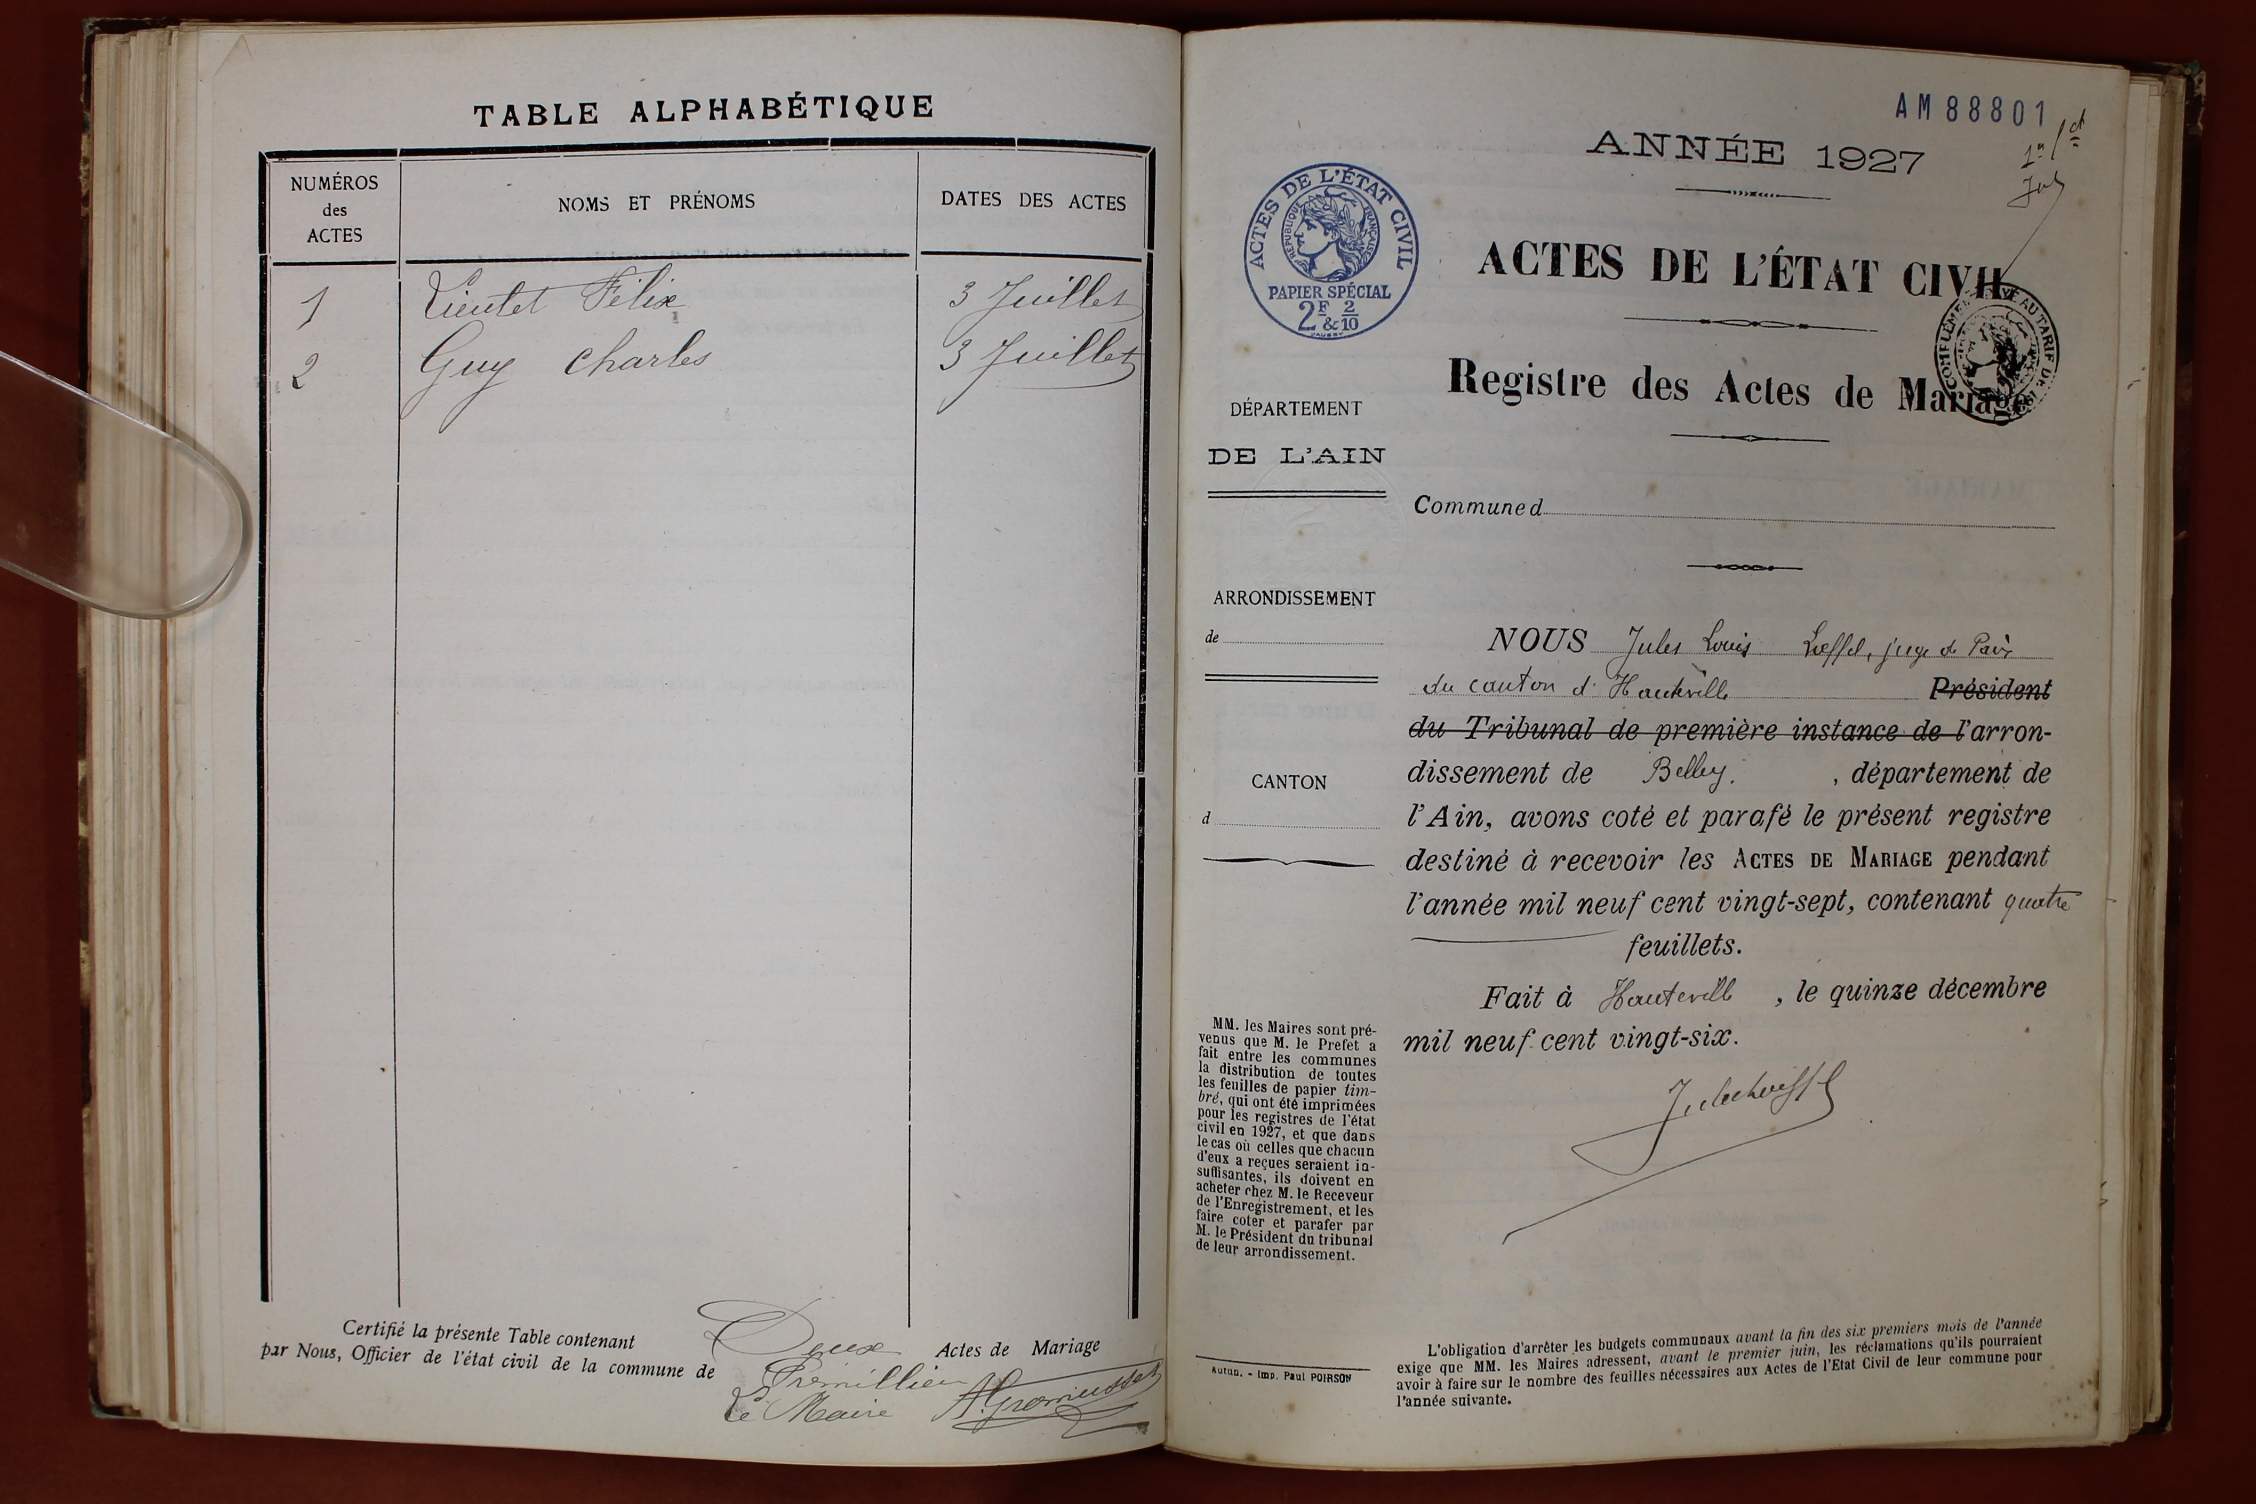 TABLE ALPHABÉTIQUE
NUMÉROS
des
ACTES
NOMS ET PRÉNOMS
DATES DES ACTES
1 Vieutet Félix 3 Juillet
2 Guy Charles 3 Juillet
Certifié la présente Table contenant Deux Actes de Mariage
par Nous, Officier de l'état civil de la commune de Prémillieu
Le Maire
AM 88801
ANNÉE 1927
ACTES DE L'ÉTAT CIVIL
RÉPUBLIQUE FRANÇAISE
PAPIER SPÉCIAL
2F & 2/10
ACTES DE L'ÉTAT CIVIL
Registre des Actes de Mariage
DÉPARTEMENT
DE L'AIN
Commune d
ARRONDISSEMENT
de
CANTON
d
NOUS Jules Louis Lœffel, juge de Paix
du canton d'Hauteville Président
du Tribunal de première instance de l'arron-
dissement de Belley. , département de
l'Ain, avons coté et parafé le présent registre
destiné à recevoir les ACTES DE MARIAGE pendant
l'année mil neuf cent vingt-sept, contenant quatre
feuillets.
Fait à Hauteville , le quinze décembre
mil neuf cent vingt-six.
MM. les Maires sont pré-
venus que M. le Prefet a
fait entre les communes
la distribution de toutes
les feuilles de papier tim-
bré, qui ont été imprimées
pour les registres de l'état
civil en 1927, et que dans
le cas où celles que chacun
d'eux a reçues seraient in-
suffisantes, ils doivent en
acheter chez M. le Receveur
de l'Enregistrement, et les
faire coter et parafer par
M. le Président du tribunal
de leur arrondissement.
Autun. - Imp. Paul POIRSON
L'obligation d'arrêter les budgets communaux avant la fin des six premiers mois de l'année
exige que MM. les Maires adressent, avant le premier juin, les réclamations qu'ils pourraient
avoir à faire sur le nombre des feuilles nécessaires aux Actes de l'Etat Civil de leur commune pour
l'année suivante.